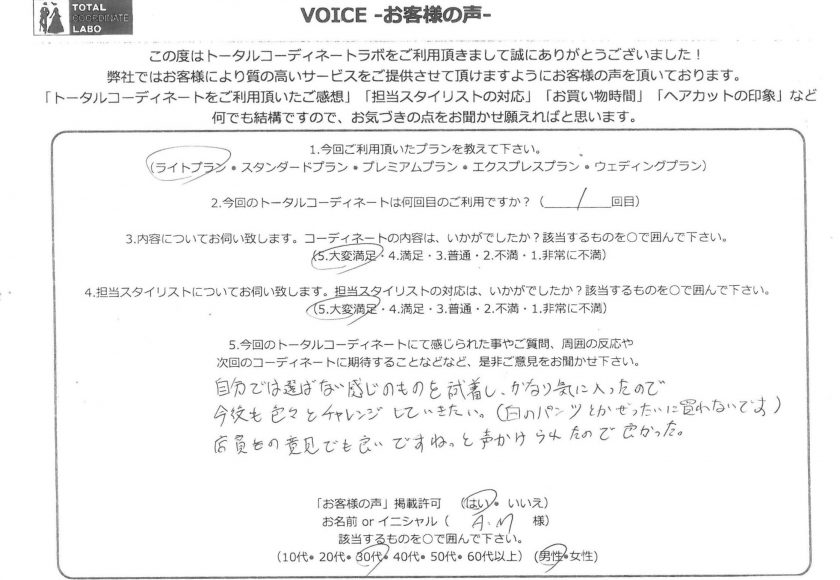 TOTAL
COORDINATE
LABO
VOICE -お客様の声-
この度はトータルコーディネートラボをご利用頂きまして誠にありがとうございました！
弊社ではお客様により質の高いサービスをご提供させて頂けますようにお客様の声を頂いております。
「トータルコーディネートをご利用頂いたご感想」「担当スタイリストの対応」「お買い物時間」「ヘアカットの印象」など
何でも結構ですので、お気づきの点をお聞かせ願えればと思います。
1.今回ご利用頂いたプランを教えて下さい。
(ライトプラン・スタンダードプラン・プレミアムプラン・エクスプレスプラン・ウェディングプラン)
2.今回のトータルコーディネートは何回目のご利用ですか？（ 1 回目)
3.内容についてお伺い致します。コーディネートの内容は、いかがでしたか？該当するものを○で囲んで下さい。
(5.大変満足・4.満足・3.普通・2.不満・1.非常に不満)
4.担当スタイリストについてお伺い致します。担当スタイリストの対応は、いかがでしたか？該当するものを○で囲んで下さい。
(5.大変満足・4.満足・3.普通・2.不満・1.非常に不満)
5.今回のトータルコーディネートにて感じられた事やご質問、周囲の反応や
次回のコーディネートに期待することなどなど、是非ご意見をお聞かせ下さい。
自分では選ばない感じのものを試着し、かなり気に入ったので
今後も色々とチャレンジしていきたい。(白のパンツとかぜったいに買わないです)
店員さの意見でも良いですねっと声かけられたので良かった。
「お客様の声」掲載許可 (はい・いいえ)
お名前 or イニシャル（ A.M 様）
該当するものを○で囲んで下さい。
(10代・20代・30代・40代・50代・60代以上) (男性・女性)